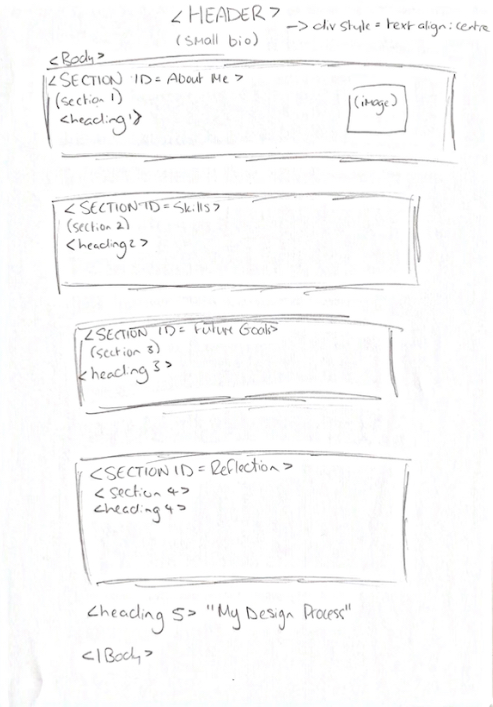 <HEADER> -> div style = text align: centre
(small bio)
<Body>
<SECTION ID = About Me>
(section 1)
<heading 1>
(image)
<SECTION ID = Skills>
(section 2)
<heading 2>
<SECTION ID = Future Goals>
(section 3)
<heading 3>
<SECTION ID = Reflection>
<section 4>
<heading 4>
<heading 5> "My Design Process"
</Body>